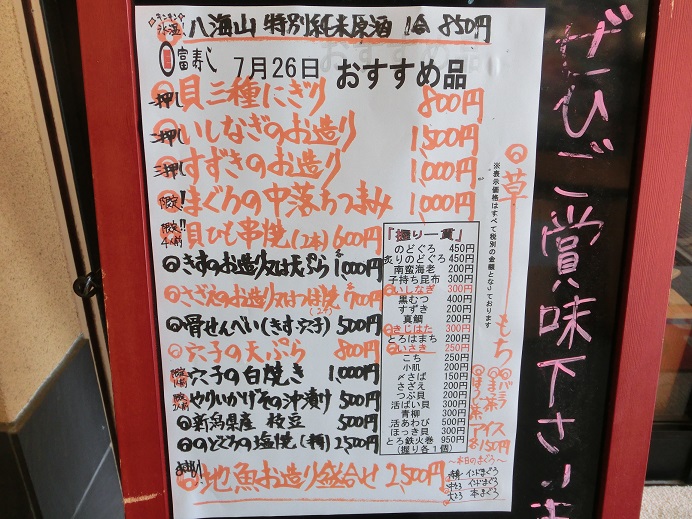 氷温 八海山 特別純米原酒 1合 850円
富寿し 7月26日 おすすめ品
一押し 貝三種にぎり 800円
二押し いしなぎのお造り 1,500円
三押し すずきのお造り 1,000円
限定!! まぐろの中落ちつまみ 1,000円
限定4人前 貝ひも串焼(2本) 600円
きすのお造り又は天ぷら 1,000円
さざえのお造り又はつぼ焼 700円
骨せんべい(きす、穴子) 500円
穴子の天ぷら 800円
穴子の白焼き 1,000円
やりいかげその沖漬け 500円
新潟県産 枝豆 500円
のどぐろの塩焼(半精) 2,500円
地魚お造り盛合せ 2,500円
『握り一貫』
のどぐろ 450円
炙りのどぐろ 450円
南蛮海老 200円
子持ち昆布 300円
いしなぎ 300円
黒むつ 400円
すずき 200円
真鯛 200円
きじはた 300円
とろはまち 200円
いさき 250円
こち 250円
小肌 200円
〆さば 150円
さざえ 200円
つぶ貝 200円
活ばい貝 300円
青柳 300円
活あわび 500円
ほっき貝 300円
とろ鉄火巻 950円
(握り各1個)
※表示価格はすべて税別の金額となっております
草もち
バニラ
まっ茶
アイス
各150円
〜本日のまぐろ〜
赤身 インドまぐろ
中とろ インドまぐろ
大とろ 本まぐろ
ぜひご賞味下さいま